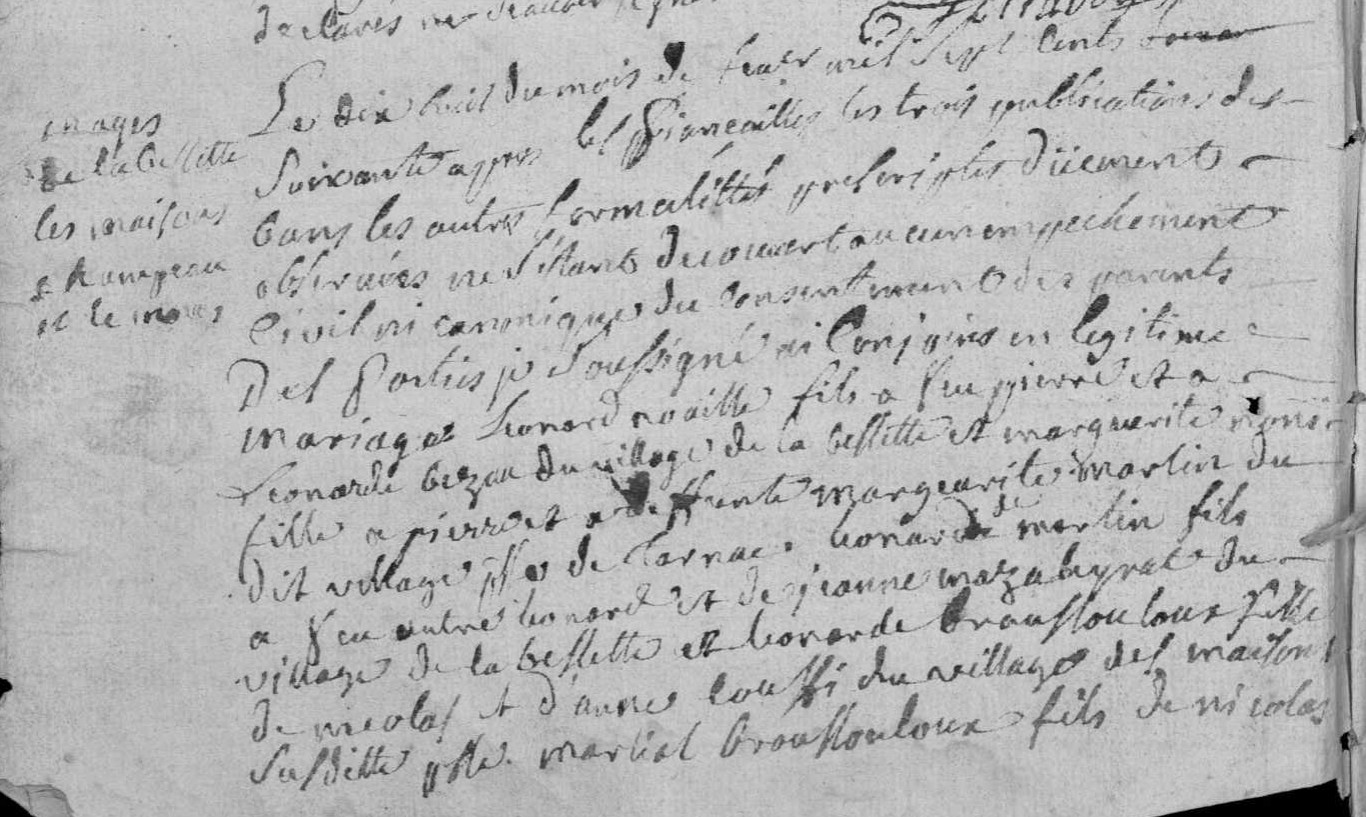 declarés ne scavoir signer
mages
de la bessette
les maisons
champeau
et le mons
Le dix huit du mois de fevr mil sept cents
soixante appres les fiançailles les trois publications des
bans les autres formalittés prescriptes düement
observées ne s'etant decouvert aucun empechement
civil ni canonique du consentement des parents
des parties je soussigné ai conjoins en legitime
mariage Leonard noaille fils a feu pierre et a
Leonarde bezau du village de la bessette et marguerite
fille a pierre et a deffunte marguerite martin du
dit village psse de Tarnac. Leonard de martin fils
a feu autre Leonard et de jeanne mazaleyrat du
village de la bessette et Leonarde broussouloux fille
de nicolas et d'anne couffi du village des maisons
susditte psse. martial broussouloux fils de nicolas